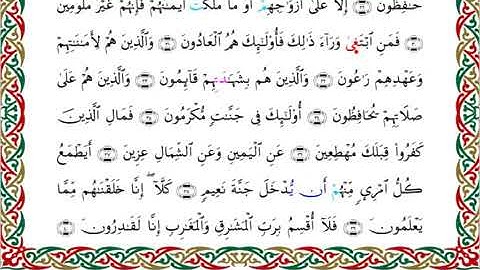 حَٰفِظُونَ ۝٢٩ إِلَّا عَلَىٰٓ أَزۡوَٰجِهِمۡ أَوۡ مَا مَلَكَتۡ أَيۡمَٰنُهُمۡ فَإِنَّهُمۡ غَيۡرُ مَلُومِينَ
۝٣٠ فَمَنِ ٱبۡتَغَىٰ وَرَآءَ ذَٰلِكَ فَأُوْلَٰٓئِكَ هُمُ ٱلۡعَادُونَ ۝٣١ وَٱلَّذِينَ هُمۡ لِأَمَٰنَٰتِهِمۡ
وَعَهۡدِهِمۡ رَٰعُونَ ۝٣٢ وَٱلَّذِينَ هُم بِشَهَٰدَٰتِهِمۡ قَآئِمُونَ ۝٣٣ وَٱلَّذِينَ هُمۡ عَلَىٰ
صَلَاتِهِمۡ يُحَافِظُونَ ۝٣٤ أُوْلَٰٓئِكَ فِي جَنَّٰتٖ مُّكۡرَمُونَ ۝٣٥ فَمَالِ ٱلَّذِينَ
كَفَرُواْ قِبَلَكَ مُهۡطِعِينَ ۝٣٦ عَنِ ٱلۡيَمِينِ وَعَنِ ٱلشِّمَالِ عِزِينَ ۝٣٧ أَيَطۡمَعُ
كُلُّ ٱمۡرِيٕٖ مِّنۡهُمۡ أَن يُدۡخَلَ جَنَّةَ نَعِيمٖ ۝٣٨ كَلَّآۖ إِنَّا خَلَقۡنَٰهُم مِّمَّا
يَعۡلَمُونَ ۝٣٩ فَلَآ أُقۡسِمُ بِرَبِّ ٱلۡمَشَٰرِقِ وَٱلۡمَغَٰرِبِ إِنَّا لَقَٰدِرُونَ ۝٤٠